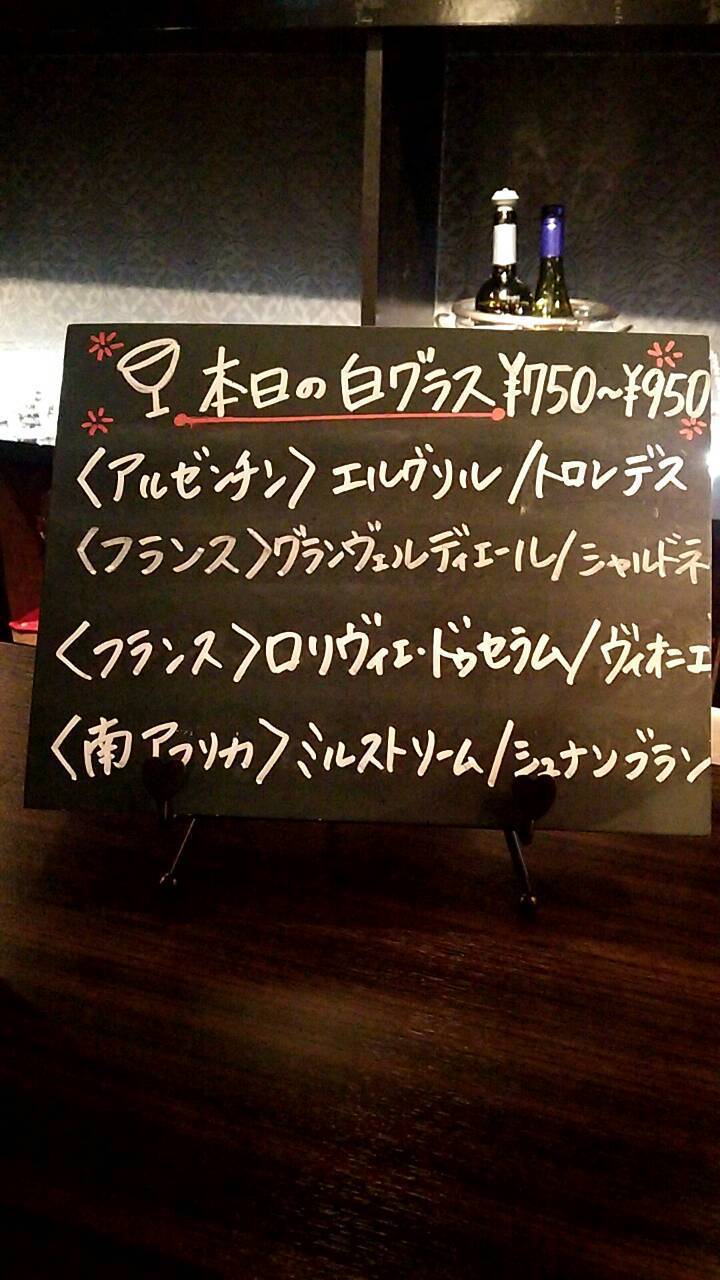 本日の白グラス ¥750~¥950
〈アルゼンチン〉エルヴソル/トロンテス
〈フランス〉グランヴェルディエール/シャルドネ
〈フランス〉ロリヴィエ・ドゥセラム/ヴィオニエ
〈南アフリカ〉ミルストリーム/シュナンブラン